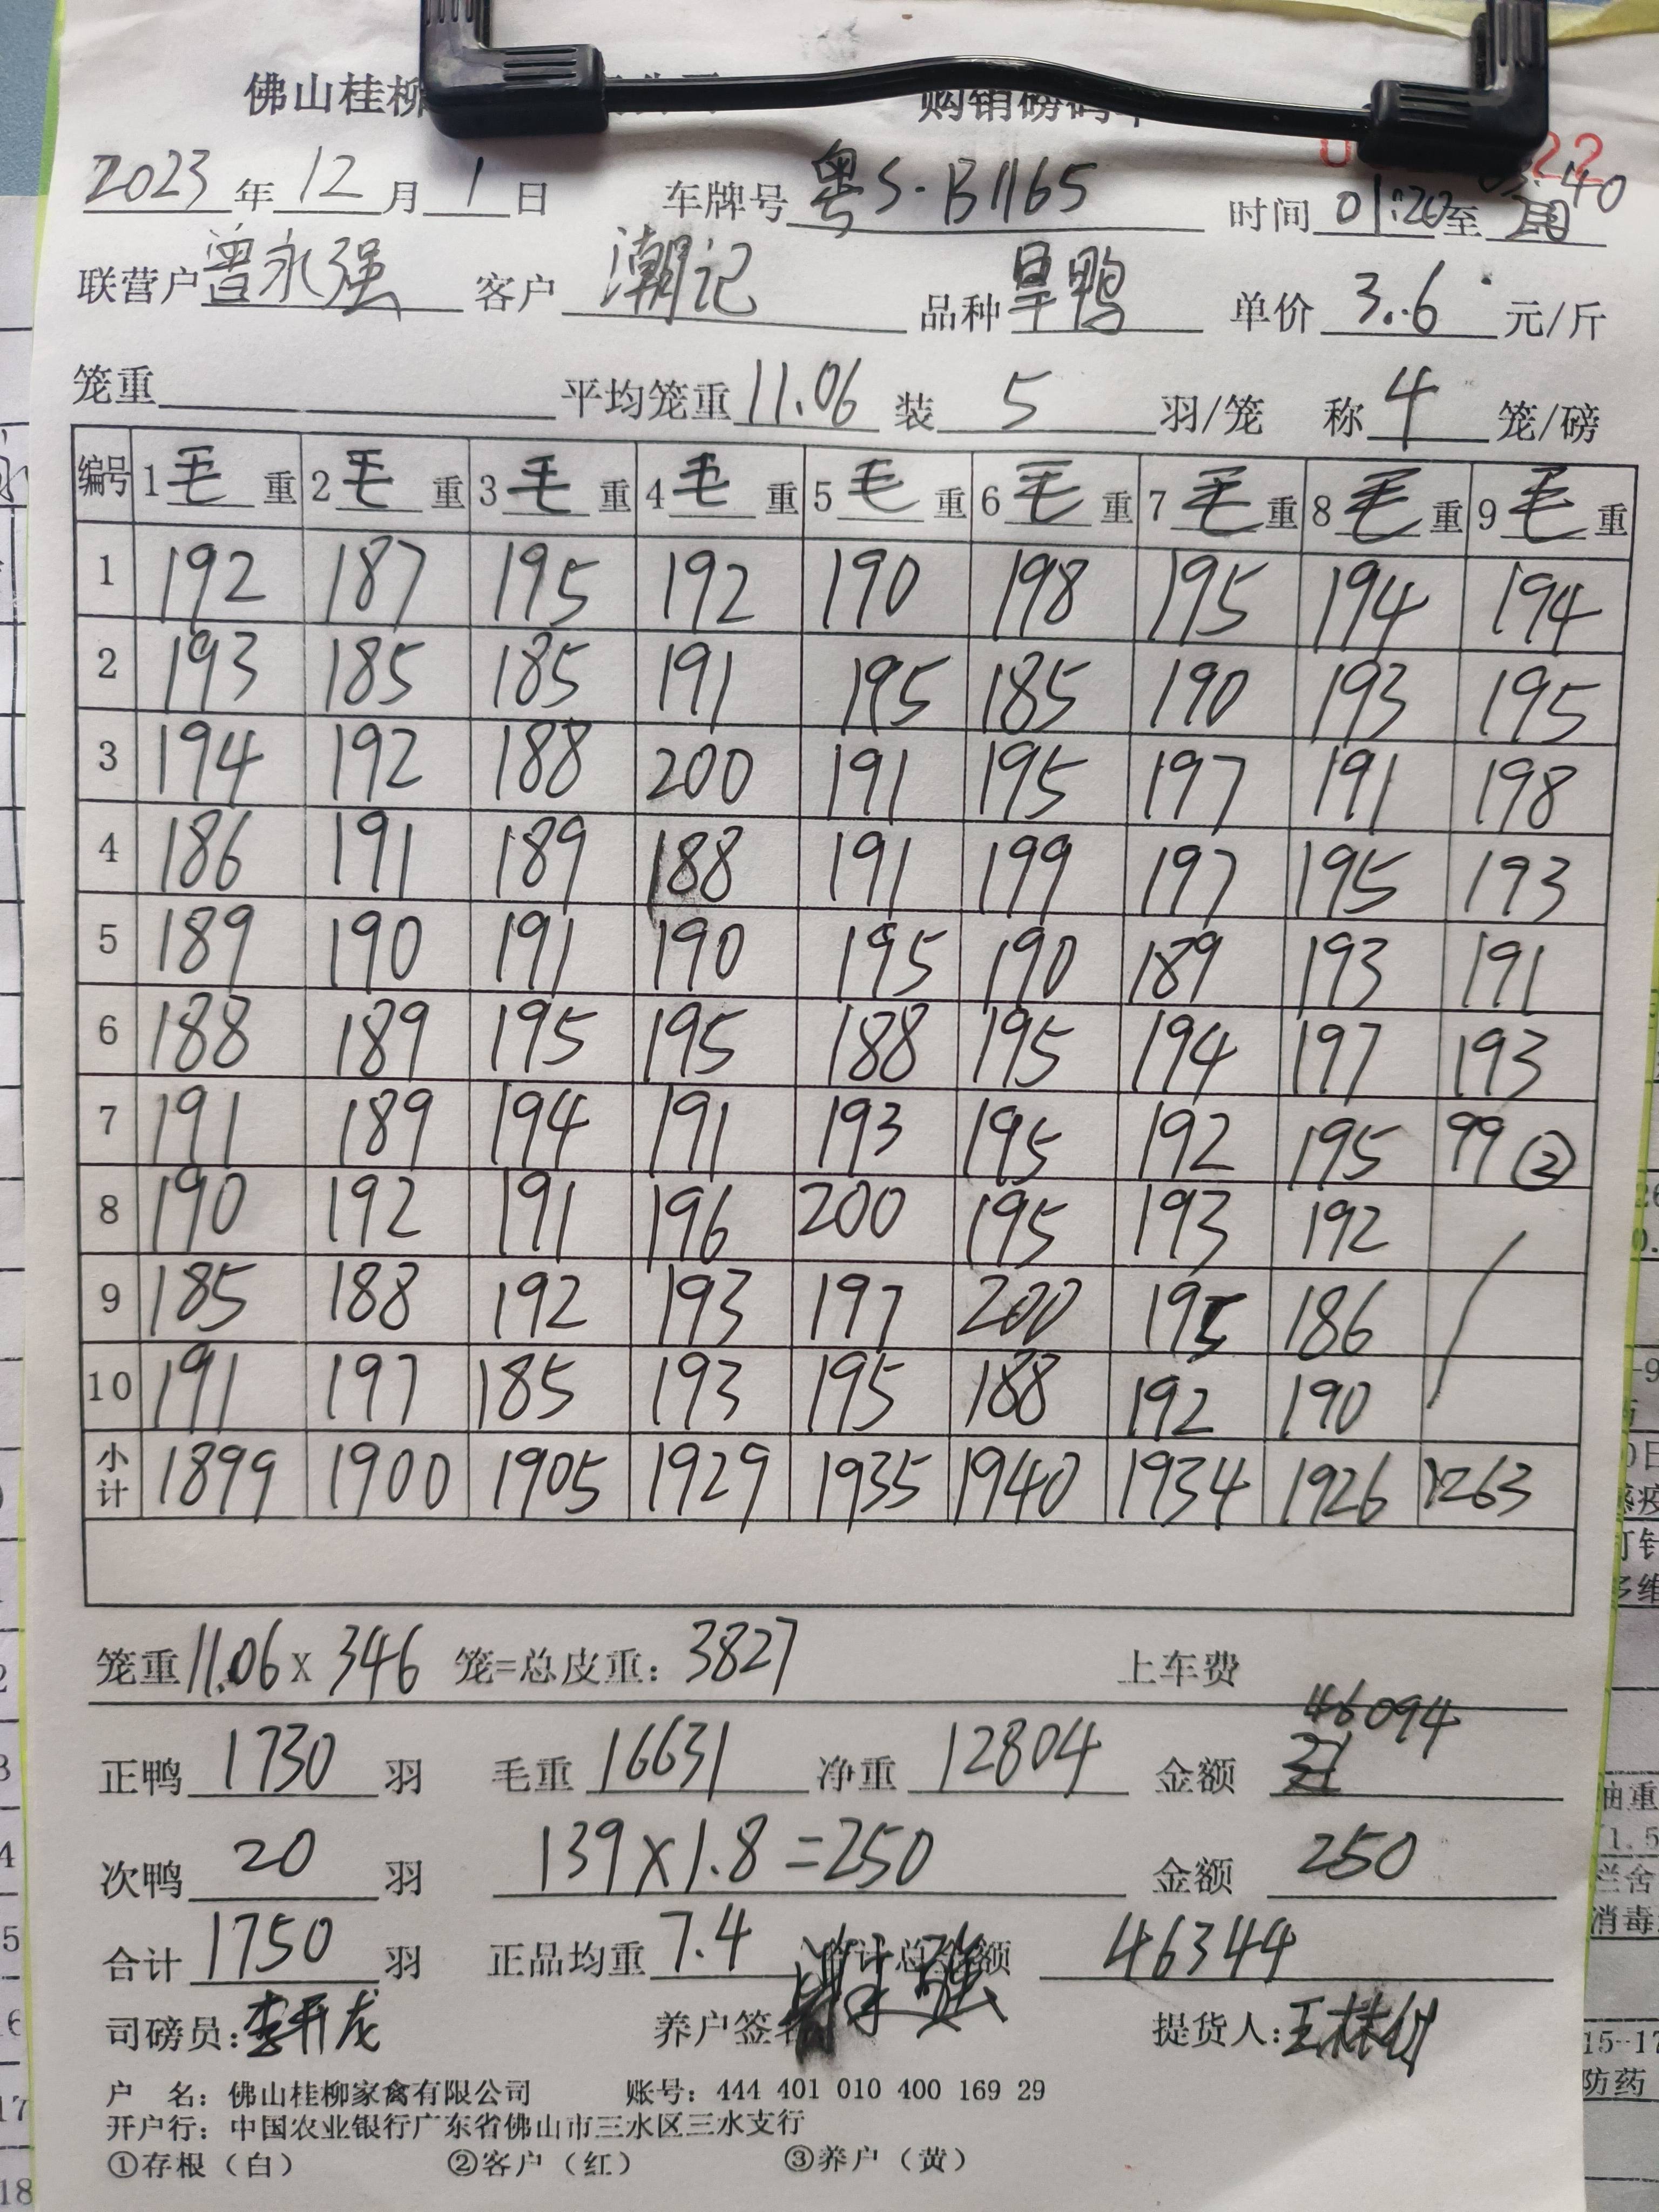 佛山桂柳 购销磅码单
22
2023年12月1日 车牌号粤S·B1165 时间01:20至03:40
联营户曾永强 客户潮记 品种旱鸭 单价3.6元/斤
笼重 平均笼重11.06 装5羽/笼 称4笼/磅
编号 1毛重 2毛重 3毛重 4毛重 5毛重 6毛重 7毛重 8毛重 9毛重
1 192 187 195 192 190 198 195 194 194
2 193 185 185 191 195 185 190 193 195
3 194 192 188 200 191 195 197 191 198
4 186 191 189 188 191 199 197 195 193
5 189 190 191 190 195 190 189 193 191
6 188 189 195 195 188 195 194 197 193
7 191 189 194 191 193 195 192 195 99②
8 190 192 191 196 200 195 193 192
9 185 188 192 193 197 200 195 186
10 191 197 185 193 195 188 192 190
小计 1899 1900 1905 1929 1935 1940 1934 1926 1263
笼重11.06×346笼=总皮重:3827 上车费
正鸭1730羽 毛重16631 净重12804 金额46094
次鸭20羽 139×1.8=250 金额250
合计1750羽 正品均重7.4 合计总金额46344
司磅员:李开龙 养户签名 提货人:王林
户 名:佛山桂柳家禽有限公司 账号:444 401 010 400 169 29
开户行:中国农业银行广东省佛山市三水区三水支行
①存根(白) ②客户(红) ③养户(黄)